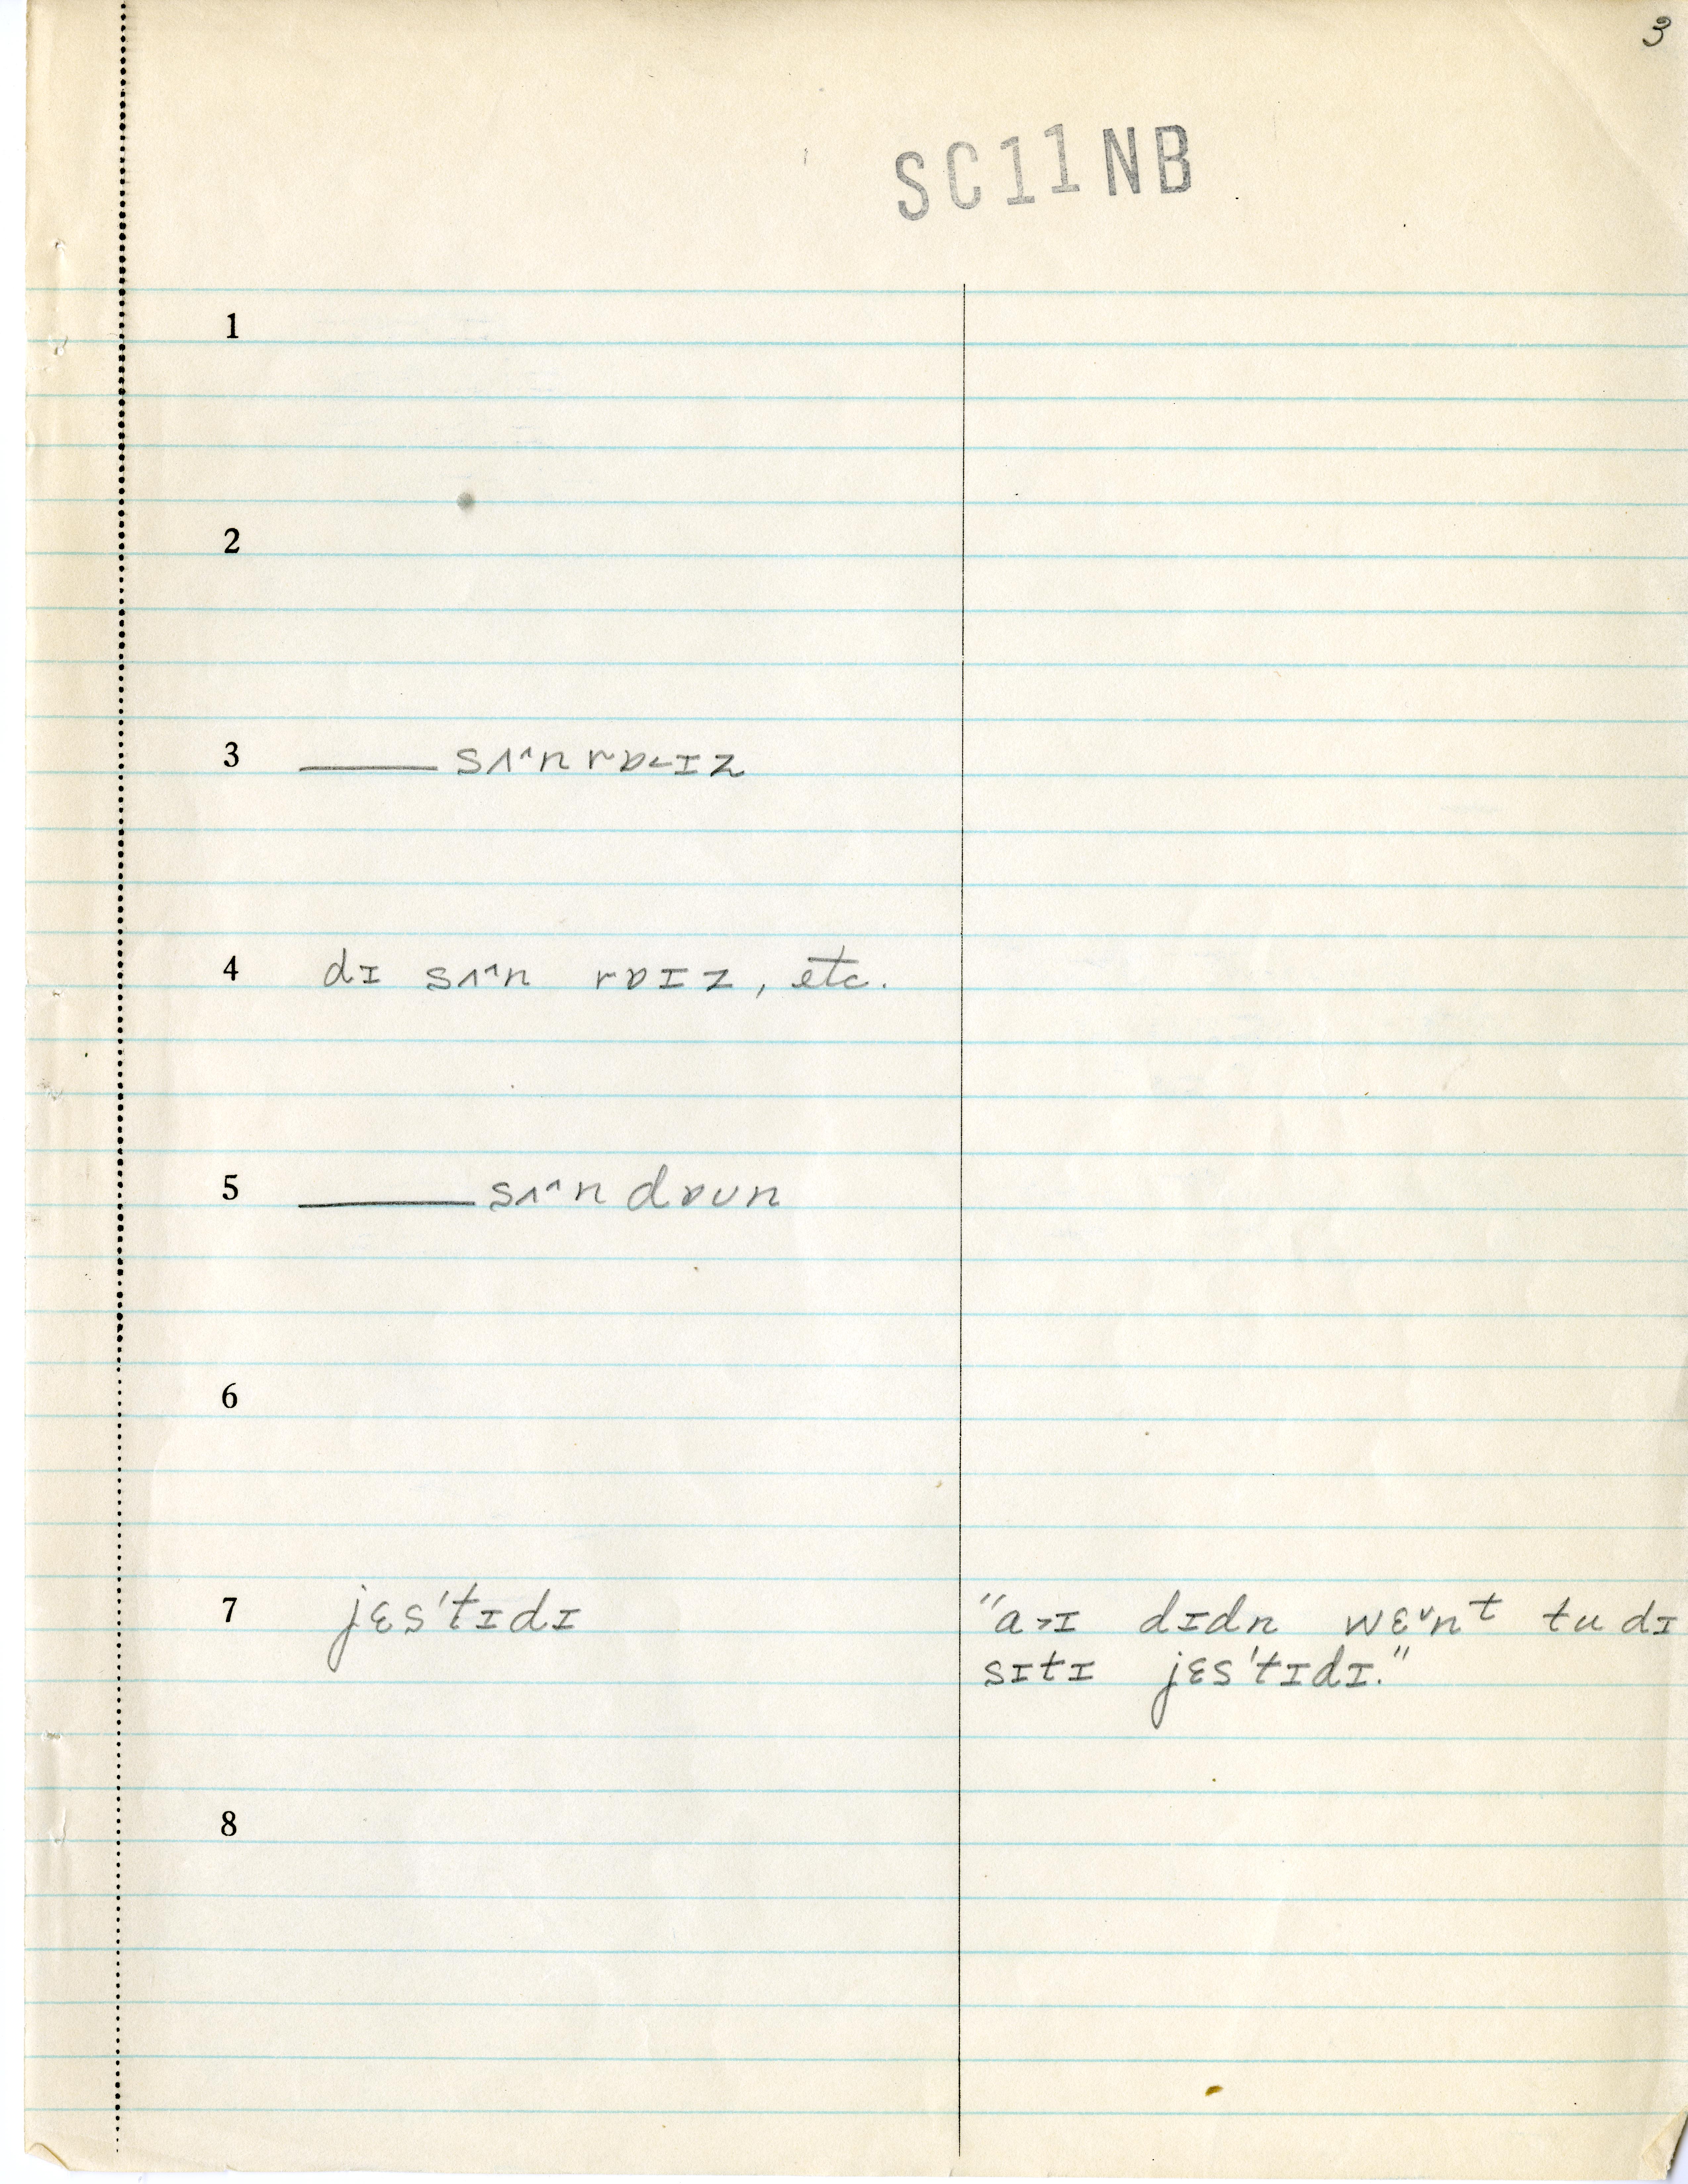 3
SC11NB
1
2
3 ——— sʌ^n rɒ˂ɪz
4 dɪ sʌ^n rɒɪz, etc.
5 ——— sʌ^n dɒʊn
6
7 jɛs'tɪdɪ "a˃ɪ dɪdn wɛ˅nt tu dɪ
sɪtɪ jɛs'tɪdɪ."
8